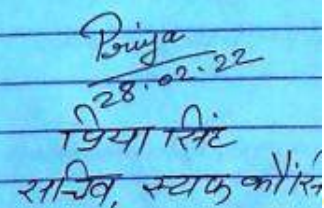 Priya
28.02.22
प्रिया सिंह
सचिव, स्टाफ कौंसि